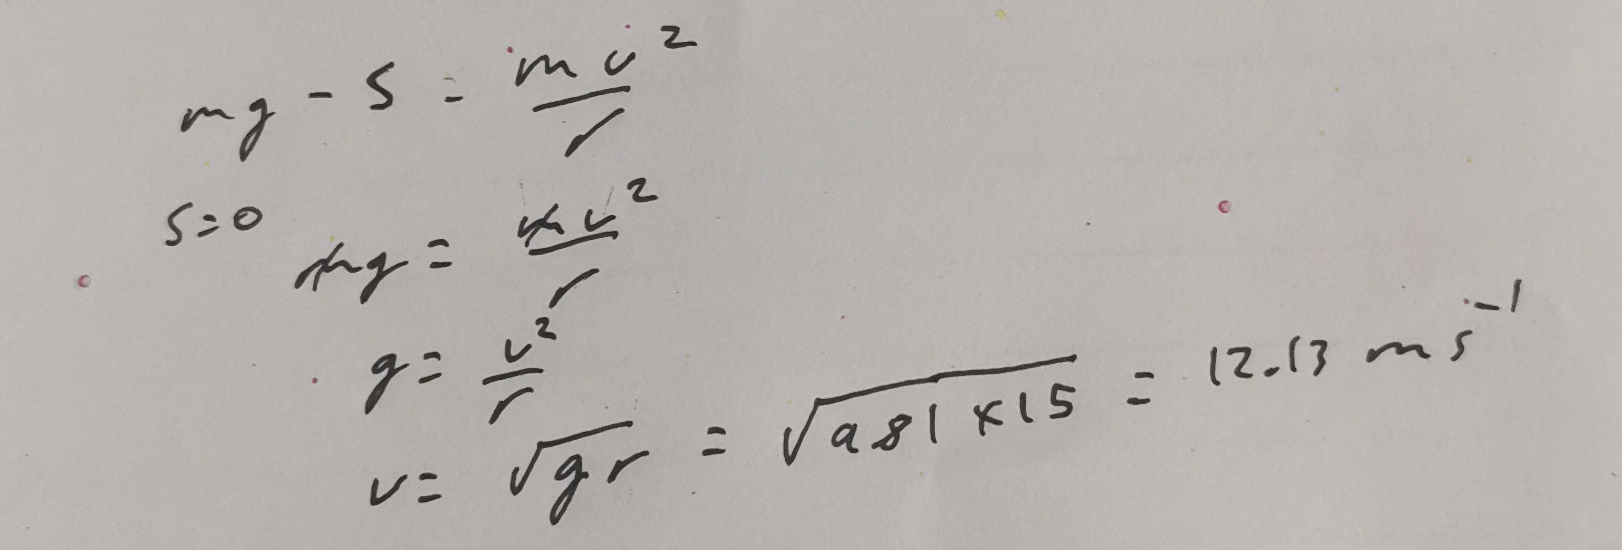 mg - S = mv²/r
S=0 mg = mv²/r
g = v²/r
v = √gr = √981×15 = 12.13 ms⁻¹